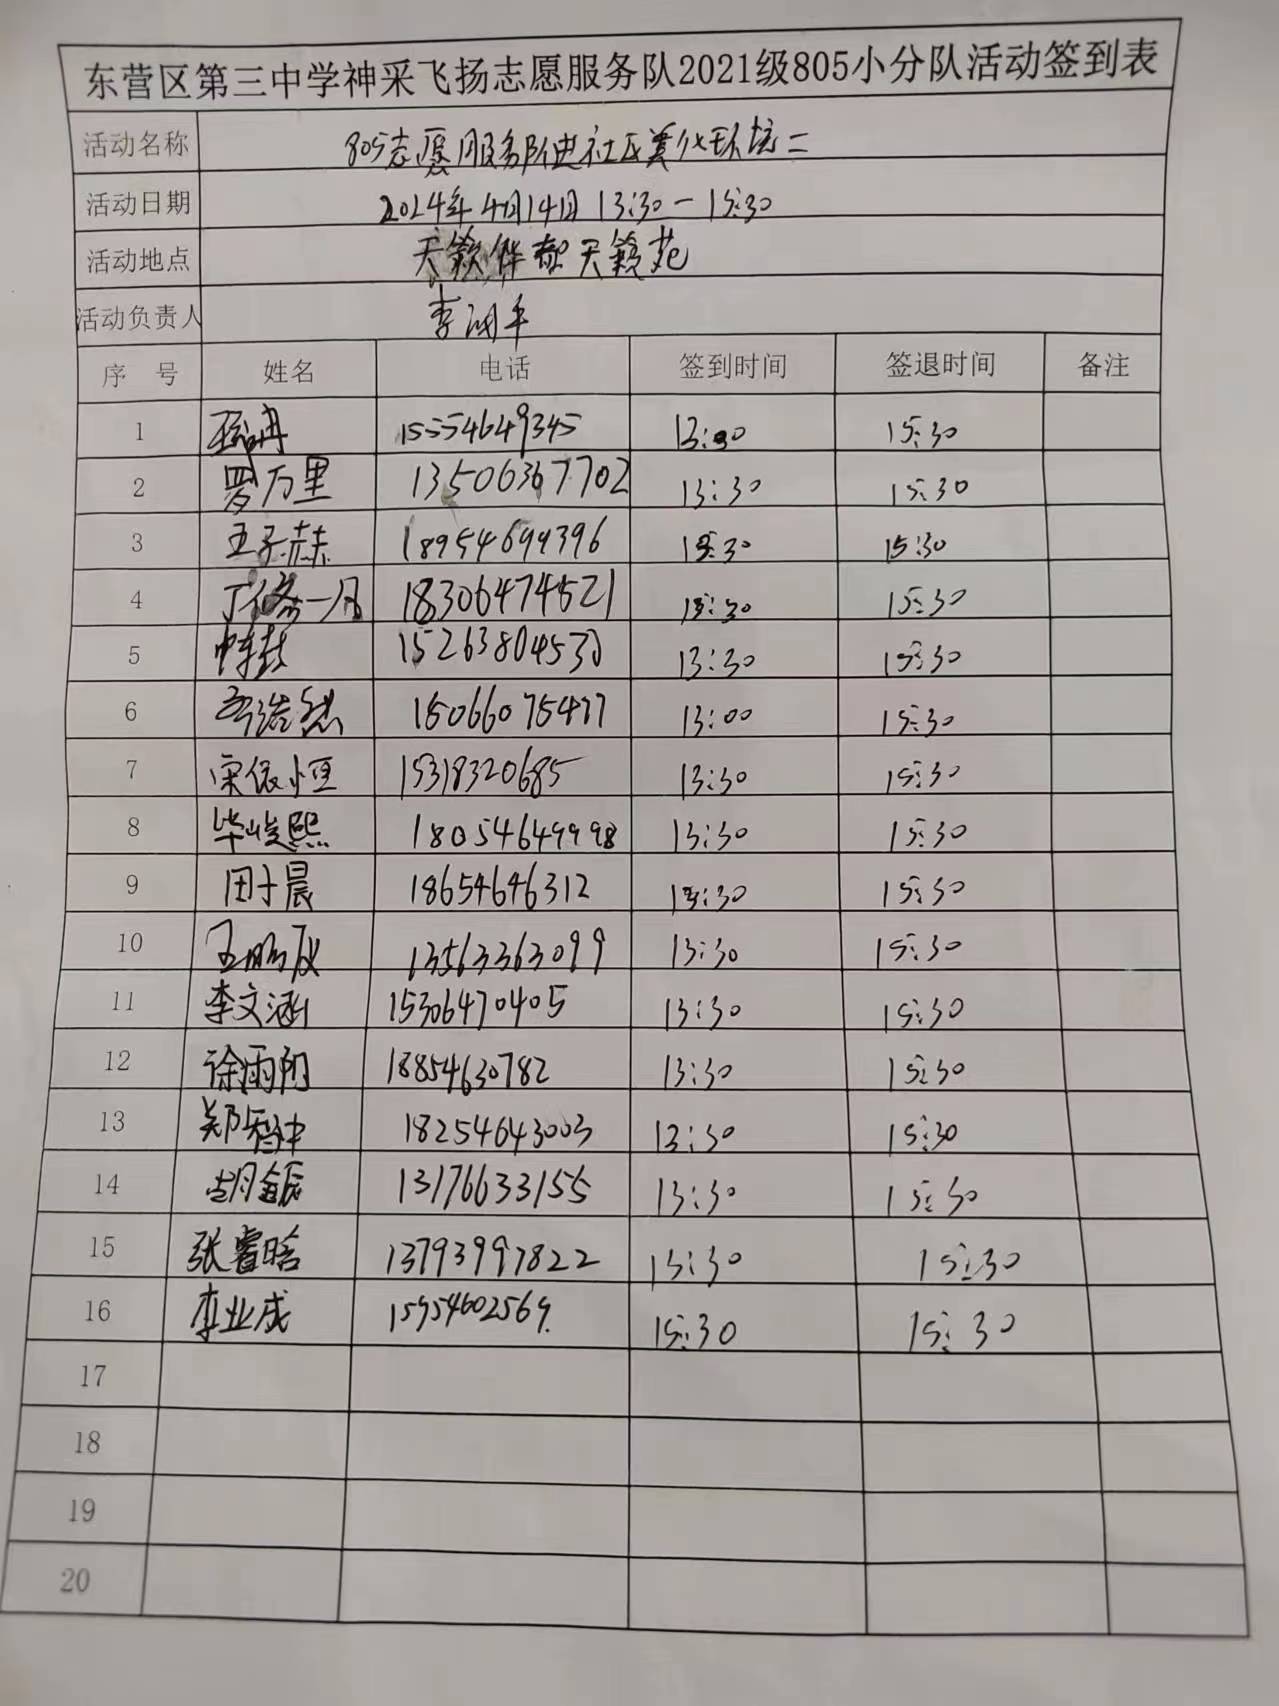 东营区第三中学神采飞扬志愿服务队2021级805小分队活动签到表
活动名称 805志愿服务队进社区美化环境二
活动日期 2024年4月14日 13:30-15:30
活动地点 天籁苑
活动负责人 李
序 号 姓名 电话 签到时间 签退时间 备注
1 15554649345 13:30 15:30
2 罗万里 13506367702 13:30 15:30
3 王子赫 18954694396 13:30 15:30
4 丁修一凡 18306474521 13:30 15:30
5 15263804530 13:30 15:30
6 15066075477 13:00 15:30
7 宋依恒 15318320685 13:30 15:30
8 毕峻熙 18054649998 13:30 15:30
9 田十晨 18654646312 13:30 15:30
10 王鹏 13563363099 13:30 15:30
11 李文涵 15306470405 13:30 15:30
12 徐雨阳 18854630782 13:30 15:30
13 郑智中 18254643003 13:30 15:30
14 胡鑫辰 13176633155 13:30 15:30
15 张睿晗 13793997822 13:30 15:30
16 李业成 15954602569. 15:30 15:30
17
18
19
20